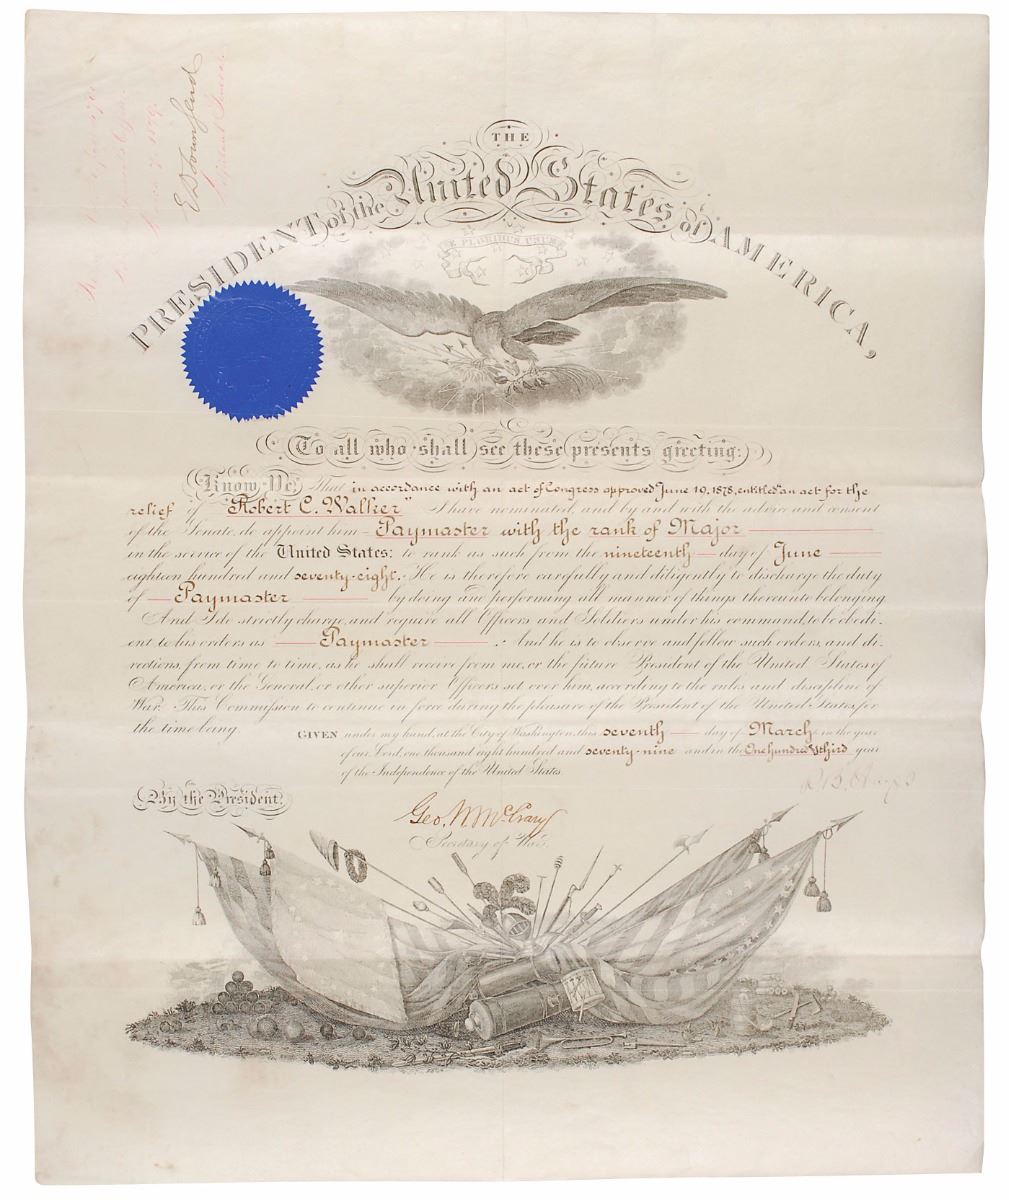 E D Townsend
THE
PRESIDENT of the United States of AMERICA,
E PLURIBUS UNUM
To all who shall see these presents greeting:
Know Ye, That in accordance with an act of Congress approved "June 19, 1878, entitled "an act for the
relief of "Robert C. Walker" I have nominated, and by and with the advice and consent
of the Senate, do appoint him Paymaster with the rank of Major
in the service of the United States: to rank as such from the nineteenth day of June
eighteen hundred and seventy-eight. He is therefore carefully and diligently to discharge the duty
of Paymaster by doing and performing all manner of things thereunto belonging.
And I do strictly charge, and require all Officers and Soldiers under his command, to be obedi-
ent to his orders as Paymaster. And he is to observe and follow such orders, and di-
rections, from time to time, as he shall receive from me, or the future President of the United States of
America, or the General, or other superior Officers set over him, according to the rules and discipline of
War. This Commission to continue in force during the pleasure of the President of the United States, for
the time being.
GIVEN under my hand, at the City of Washington, this seventh day of March in the year
of our Lord, one thousand eight hundred and seventy-nine and in the One hundred & third year
of the Independence of the United States.
By the President,
Geo. W. McCrary
Secretary of War.